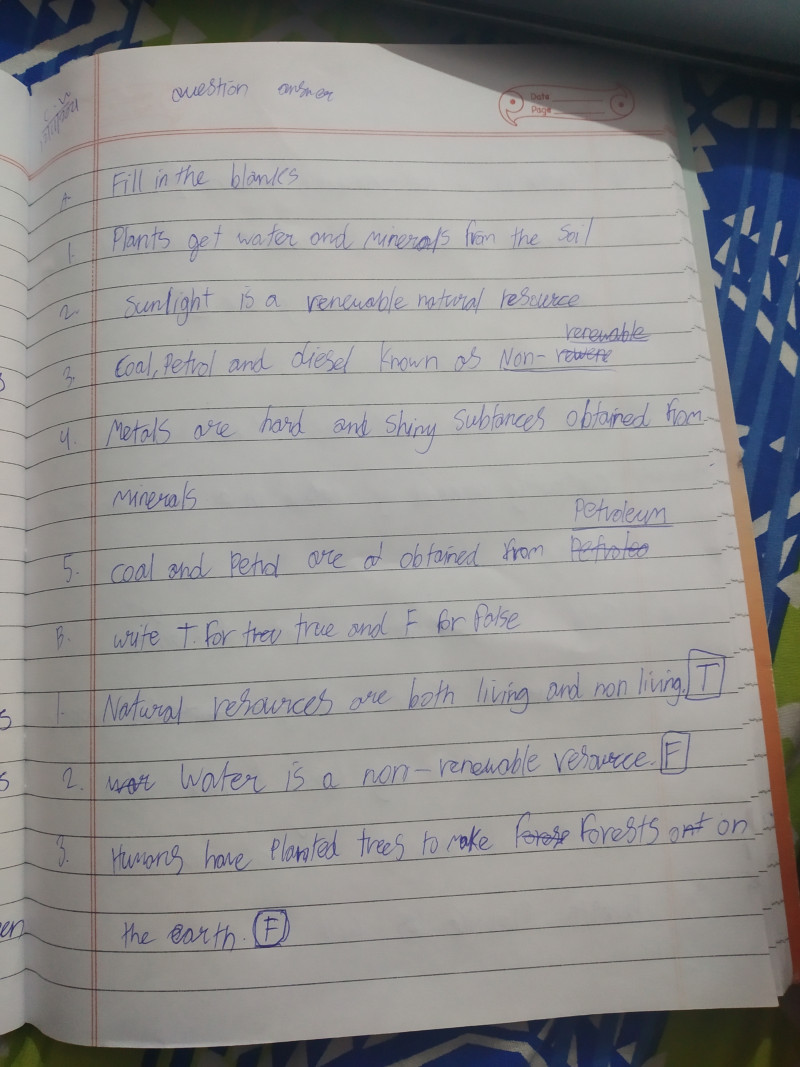 Question answer
Date
Page
A Fill in the blanks
1. Plants get water and minerals from the soil
2. Sunlight is a renewable natural resource
renewable
3. Coal, Petrol and diesel known as Non-
4. Metals are hard and shiny subtances obtained from
minerals
Petroleum
5. coal and Petrol are obtained from Petroleo
B. write T. for true and F for false
1. Natural resources are both living and non living. T
2. Water is a non-renewable resource. F
3. Humans have Planted trees to make Forests on
the earth. F
s
s
s
en